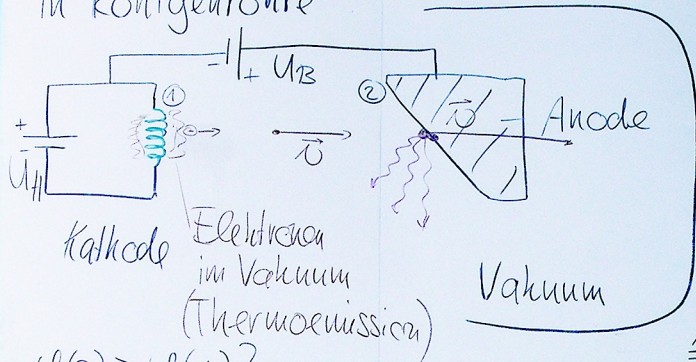 in Röntgenröhre
- + U_B
①
②
v⃗
Anode
+
-
U_H
v⃗
Kathode
Elektronen
im Vakuum
(Thermoemission)
Vakuum